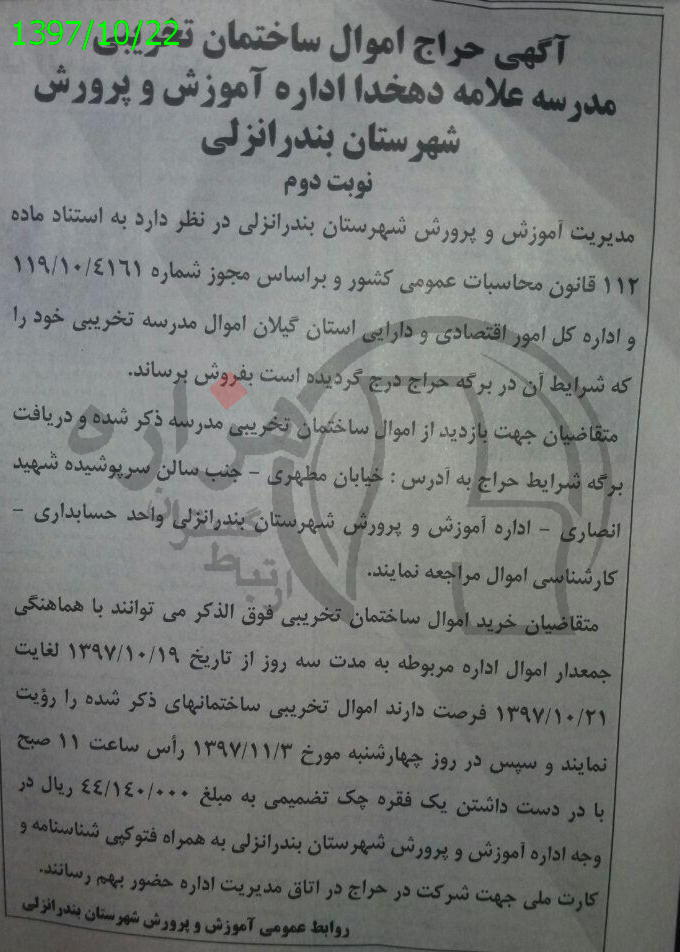 1397/10/22
آگهی حراج اموال ساختمان تخریبی
مدرسه علامه دهخدا اداره آموزش و پرورش
شهرستان بندرانزلی
نوبت دوم
مدیریت آموزش و پرورش شهرستان بندرانزلی در نظر دارد به استناد ماده
۱۱۲ قانون محاسبات عمومی کشور و براساس مجوز شماره ۱۱۹/۱۰/٤۱۶۱
و اداره کل امور اقتصادی و دارایی استان گیلان اموال مدرسه تخریبی خود را
که شرایط آن در برگه حراج درج گردیده است بفروش برساند.
متقاضیان جهت بازدید از اموال ساختمان تخریبی مدرسه ذکر شده و دریافت
برگه شرایط حراج به آدرس : خیابان مطهری - جنب سالن سرپوشیده شهید
انصاری - اداره آموزش و پرورش شهرستان بندرانزلی واحد حسابداری -
کارشناسی اموال مراجعه نمایند.
متقاضیان خرید اموال ساختمان تخریبی فوق الذکر می توانند با هماهنگی
جمعدار اموال اداره مربوطه به مدت سه روز از تاریخ ۱۳۹۷/۱۰/۱۹ لغایت
۱۳۹۷/۱۰/۲۱ فرصت دارند اموال تخریبی ساختمانهای ذکر شده را رؤیت
نمایند و سپس در روز چهارشنبه مورخ ۱۳۹۷/۱۱/۳ رأس ساعت ۱۱ صبح
با در دست داشتن یک فقره چک تضمیمی به مبلغ ٤٤/۱٤۰/۰۰۰ ریال در
وجه اداره آموزش و پرورش شهرستان بندرانزلی به همراه فتوکپی شناسنامه و
کارت ملی جهت شرکت در حراج در اتاق مدیریت اداره حضور بهم رسانند.
روابط عمومی آموزش و پرورش شهرستان بندرانزلی
هزاره
گستران
ارتباط